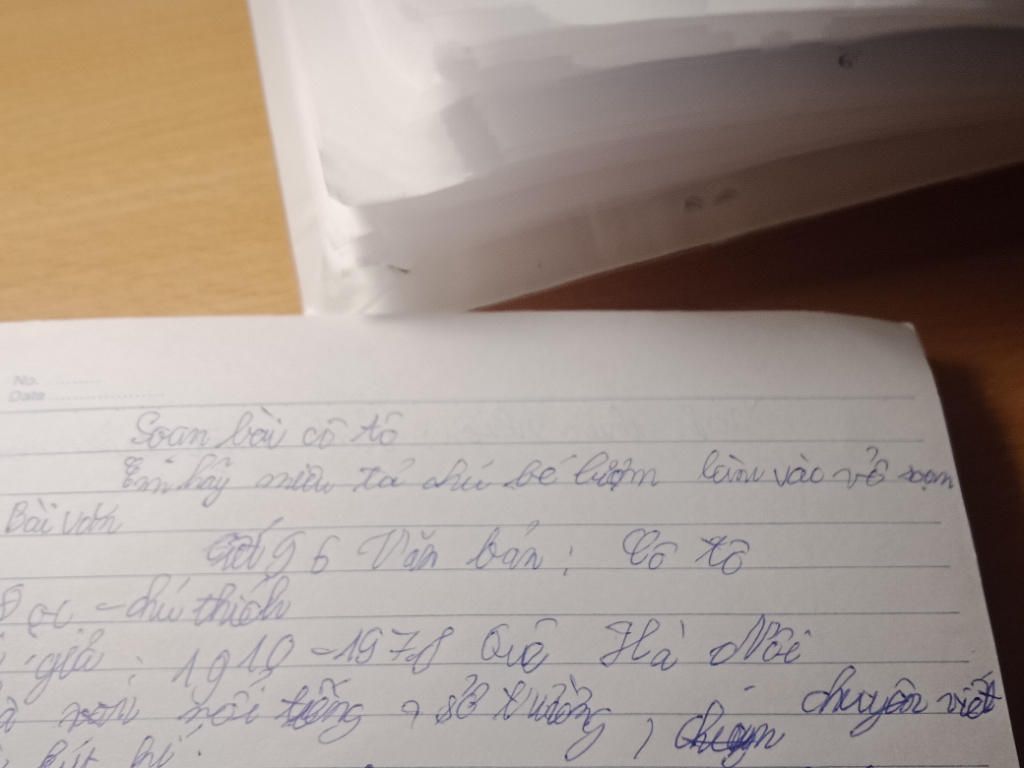 No. ............
Date ........................
Soạn bài cô tô
Em hãy miêu tả chú bé lượm làm vào vở soạn
Bài văn
96 Văn bản : Cô tô
Đọc - chú thích
giả : 1910 - 1978 Quê Hà Nội
nổi tiếng , sở trường , chuyên viết
bút kí